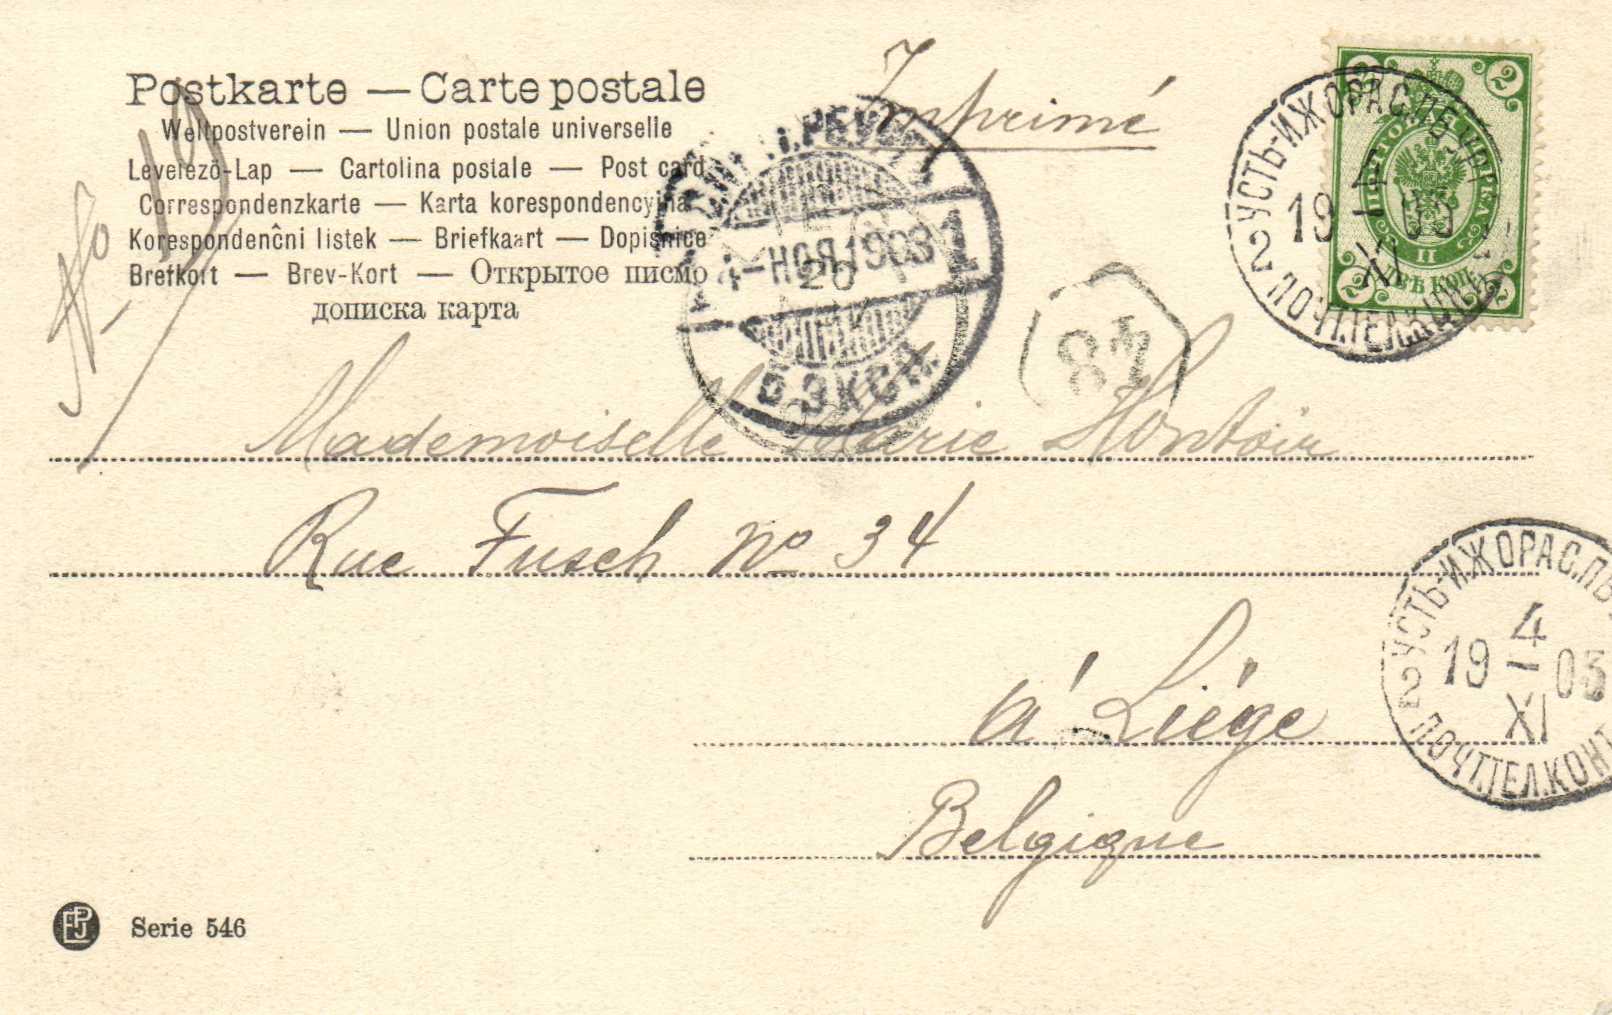 Postkarte — Carte postale
Weltpostverein — Union postale universelle
Levelező-Lap — Cartolina postale — Post card
Correspondenzkarte — Karta korespondencyjna
Korespondenčni listek — Briefkaart — Dopisnice
Brefkort — Brev-Kort — Открытое писмо
дописка карта
Imprimé
No 19
УСТЬ-ИЖОРА С.ПБ.
4
19 — 03
XI
2 ПОЧТ.ТЕЛ.КОНТ.
2 2
ДВѢ КОП.
II
4-НОЯ1903 1
20
5 ЭКСП.
48
Mademoiselle Marie Hontoir
Rue Fusch No 34
à Liége
Belgique
УСТЬ-ИЖОРА С.ПБ.
4
19 — 03
XI
2 ПОЧТ.ТЕЛ.КОНТ
EPJ Serie 546